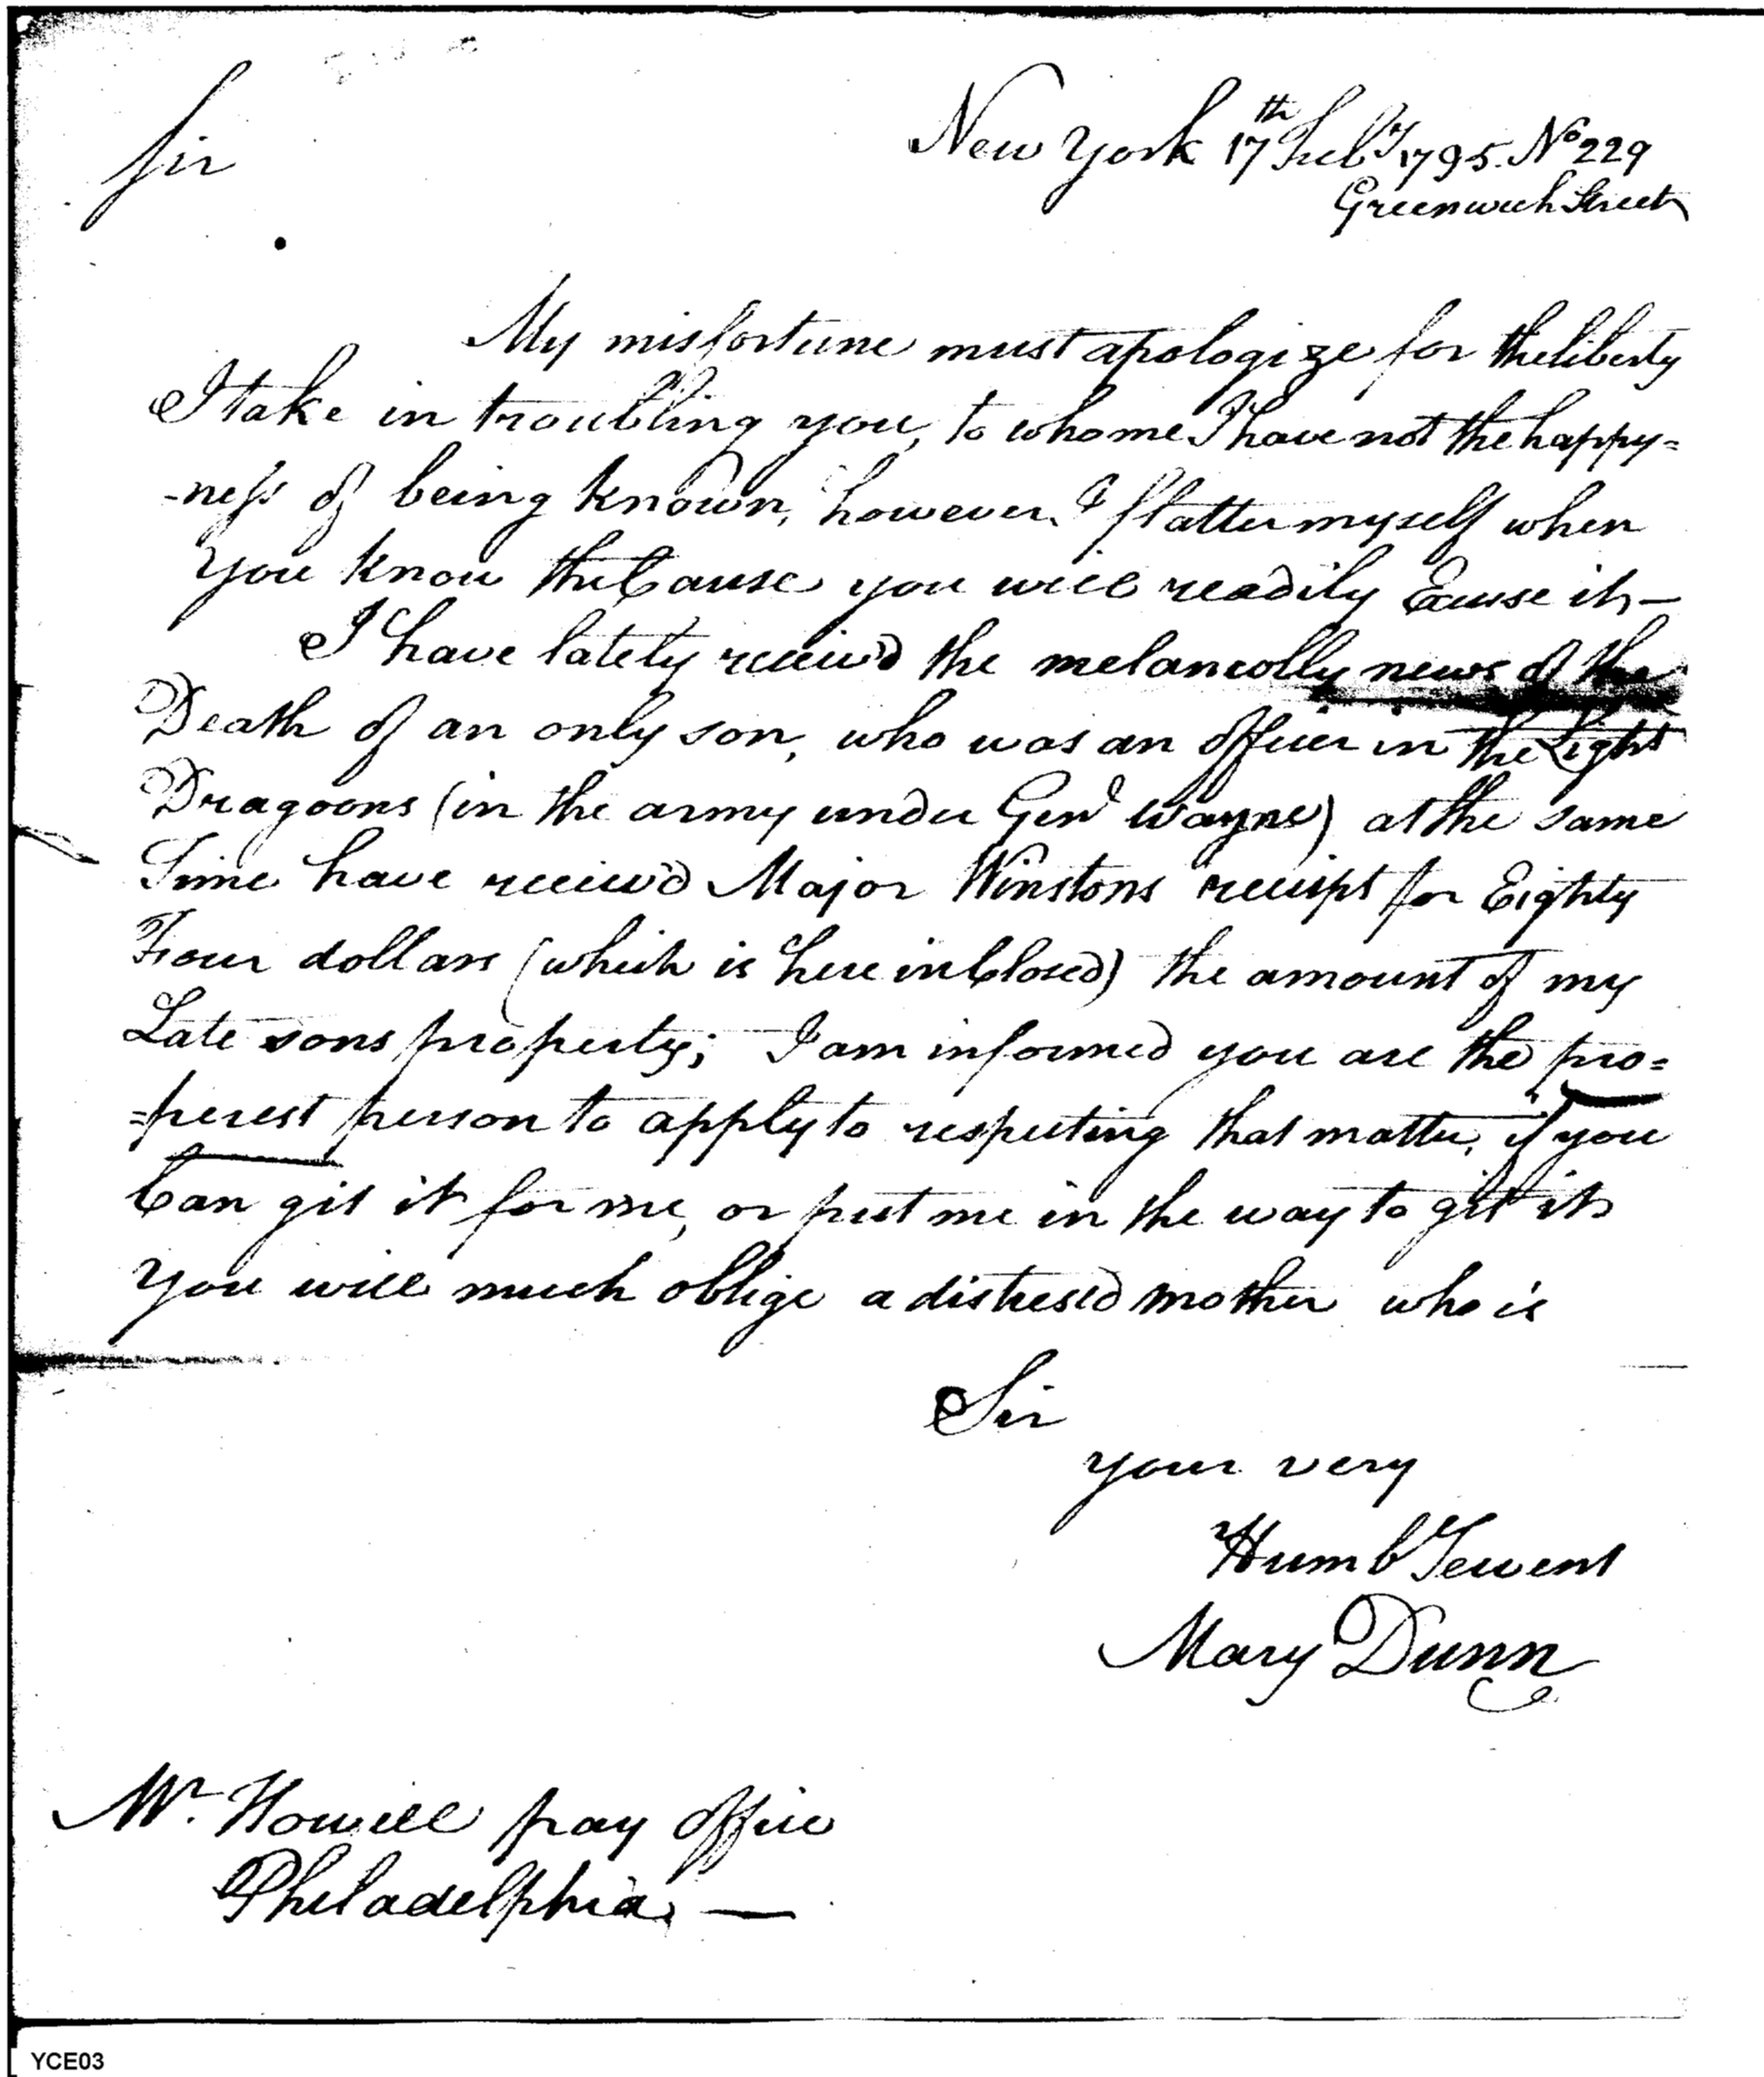 Sir
New York 17th Feby 1795. No 229
Greenwich Street
My misfortune must apologize for the liberty
I take in troubling you, to whome I have not the happy=
-ness of being known, however I flatter myself when
you know the Cause you will readily Excuse it—
I have lately receiv'd the melancolly news of the
Death of an only son, who was an officer in the Light
Dragoons (in the army under Genl Wayne) at the same
Time have receiv'd Major Winstons receipt for Eighty
Four dollars (which is here inClosed) the amount of my
Late sons property; I am informed you are the pro=
=perest person to apply to respecting that matter, if you
Can git it for me, or put me in the way to git it
you will much oblige a distresed mother who is
Sir
your very
Humb Servent
Mary Dunn
Mr. Howell pay office
Philadelphia —
YCE03